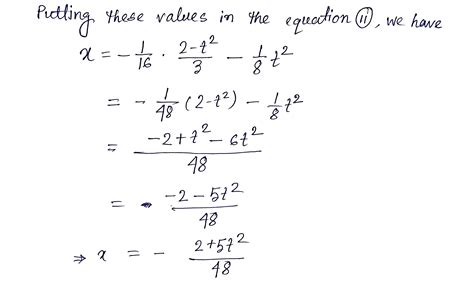 Putting these values in the equation (ii), we have
x = - 1/16 · (2-t²)/3 - 1/8 t²
= - 1/48 (2-t²) - 1/8 t²
= (-2+t²-6t²)/48
= - (-2-5t²)/48
⇒ x = - (2+5t²)/48